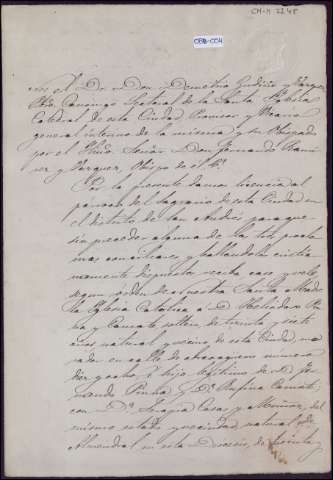 CM-M 2248
CBB-CC4
Nos el Dr. Don Demetrio Gudicio y Vazquez
Pbro. Canonigo Lectoral de la Santa Iglesia
Catedral de esta Ciudad Provisor y Vicario
general interino de la misma y su Obispado
por el Ilmo. Señor Don Fernando Rami
rez y Vazquez, Obispo de él &ª
Por la presente damos licencia al
párroco del Sagrario de esta Ciudad en
el distrito de San Andrés para que
sin preceder alguna de las tres procla
mas conciliares y hallandolos cristia
namente dispuestos reciba case y vele
segun orden de nuestra Santa Madre
la Iglesia Catolica a D. Heliodoro
y soltero de treinta y siete
años natural y vecino de esta Ciudad mo
rado en calle de numero
diez y ocho é hijo legitimo de D. Fer
nando y Dª Rufina
con Dª Casas y Muñoz, del
mismo estado y vecindad natural de
Almendral en esta Diocesis, de treinta y